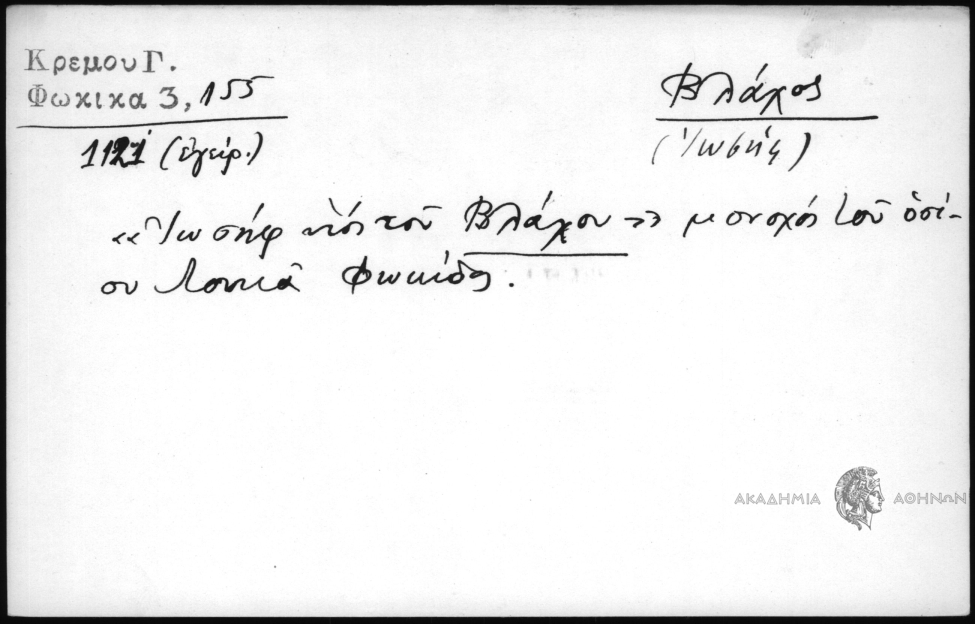 Κρεμου Γ.
Φωκικα 3, 155
1121 (ἐγείρ.)
Βλάχος
(Ἰωσήφ)
«Ἰωσήφ υἱός τοῦ Βλάχου» μοναχός τοῦ ὁσί-
ου Λουκᾶ Φωκίδος.
ΑΚΑΔΗΜΙΑ ΑΘΗΝΩΝ